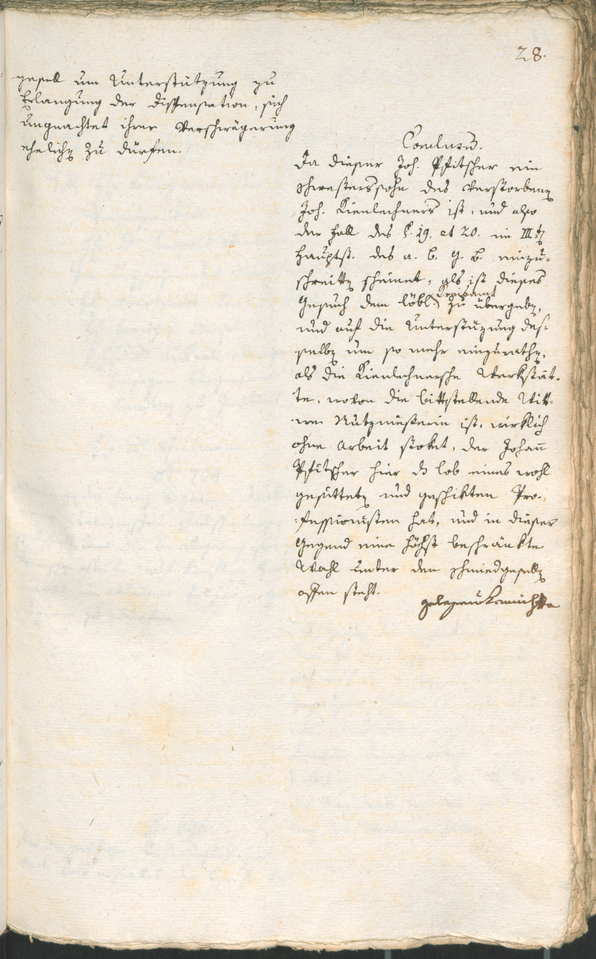 28.
gesell um Unterstützung zu
Erlangung der Dispensation, sich
ungeachtet ihrer Verschwägerung
ehelichen zu dürfen.
Conclusum.
Da dieser Joh. Pfitscher ein
Schwesterssohn des verstorbenen
Joh. Kienlechners ist, und also
der Fall des §. 19. et 20. im III.ten
Hauptst. des a. b. G. B. einzu-
schreiten scheinet, als ist dieses
Gesuch dem löbl. Kreisamt zu übergeben,
und auf die Unterstüzung des-
selben um so mehr einzurathen,
als die Kienlechnersche Werkstät-
te, wovon die bittstellende Wit-
we Nutzniesserin ist, wirklich
ohne Arbeit stokt, der Johann
Pfitscher hier das Lob eines wohl
gesitteten und geschikten Pro-
fessionisten hat, und in dieser
Gegend eine höchst beschränkte
Wahl unter den Schmiedgesellen
offen steht.